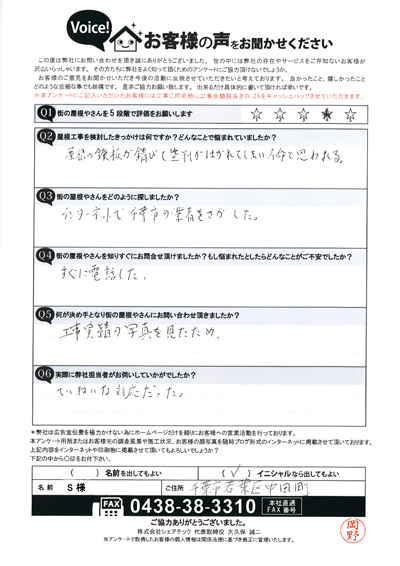 Voice!
お客様の声をお聞かせください
この度は弊社にお問い合わせを頂き誠にありがとうございました。世の中には弊社の存在やサービスをご存知ないお客様が
沢山いらっしゃいます。その方たちに弊社をよく知って頂くためのアンケートにご協力頂けないでしょうか。
お客様のご意見をお聞かせいただき今後の活動に反映させていただきたいと考えております。良かったこと、嬉しかったこと
どのような些細な事でも結構です。是非ご協力お願い致します。出来るだけ具体的に書いて頂ければ幸いです。
※本アンケートにご記入いただいたお客様には工事ご用命時に工事金額税抜きの 2%をキャッシュバックさせていただきます。
Q1 街の屋根やさんを5段階で評価をお願いします ☆ ☆ ☆ ★ ☆
Q2 屋根工事を検討したきっかけは何ですか?どんなことで悩まれていましたか?
屋根の鉄板が錆びて塗料がはがれてしまい
Q3 街の屋根やさんをどのように探しましたか?
インターネットで千葉市の業者をさがした。
Q4 街の屋根やさんを知りすぐにお問合せ頂けましたか?もし悩まれたとしたらどんなことがご不安でしたか?
すぐに電話した。
Q5 何が決め手となり街の屋根やさんにお問い合わせ頂きましたか?
工事実績の写真を見たため。
Q6 実際に弊社担当者がお伺いしていかがでしたか?
ていねいな対応だった。
*弊社は広告宣伝費を極力かけない為にホームページだけを頼りにお客様への営業活動を行っております。
本アンケート用紙またはお客様宅の調査風景や施工状況、お客様の顔写真を随時ブログ形式のインターネットに掲載させて頂いております。
上記内容をインターネットや印刷物に掲載させて頂いてもよろしいでしょうか?
下記の中から〇印をお付下さい。
( )名前を出してもよい (✓)イニシャルなら出してもよい
名前 S 様 ご住所 千葉市若葉区中田町
FAX 0438-38-3310 本社直通 FAX番号
ご協力ありがとうございました。
株式会社シェアテック 代表取締役 大久保 誠二
当アンケートで取得したお客様の個人情報は関係法規に基づき厳正に管理いたします。
岡野